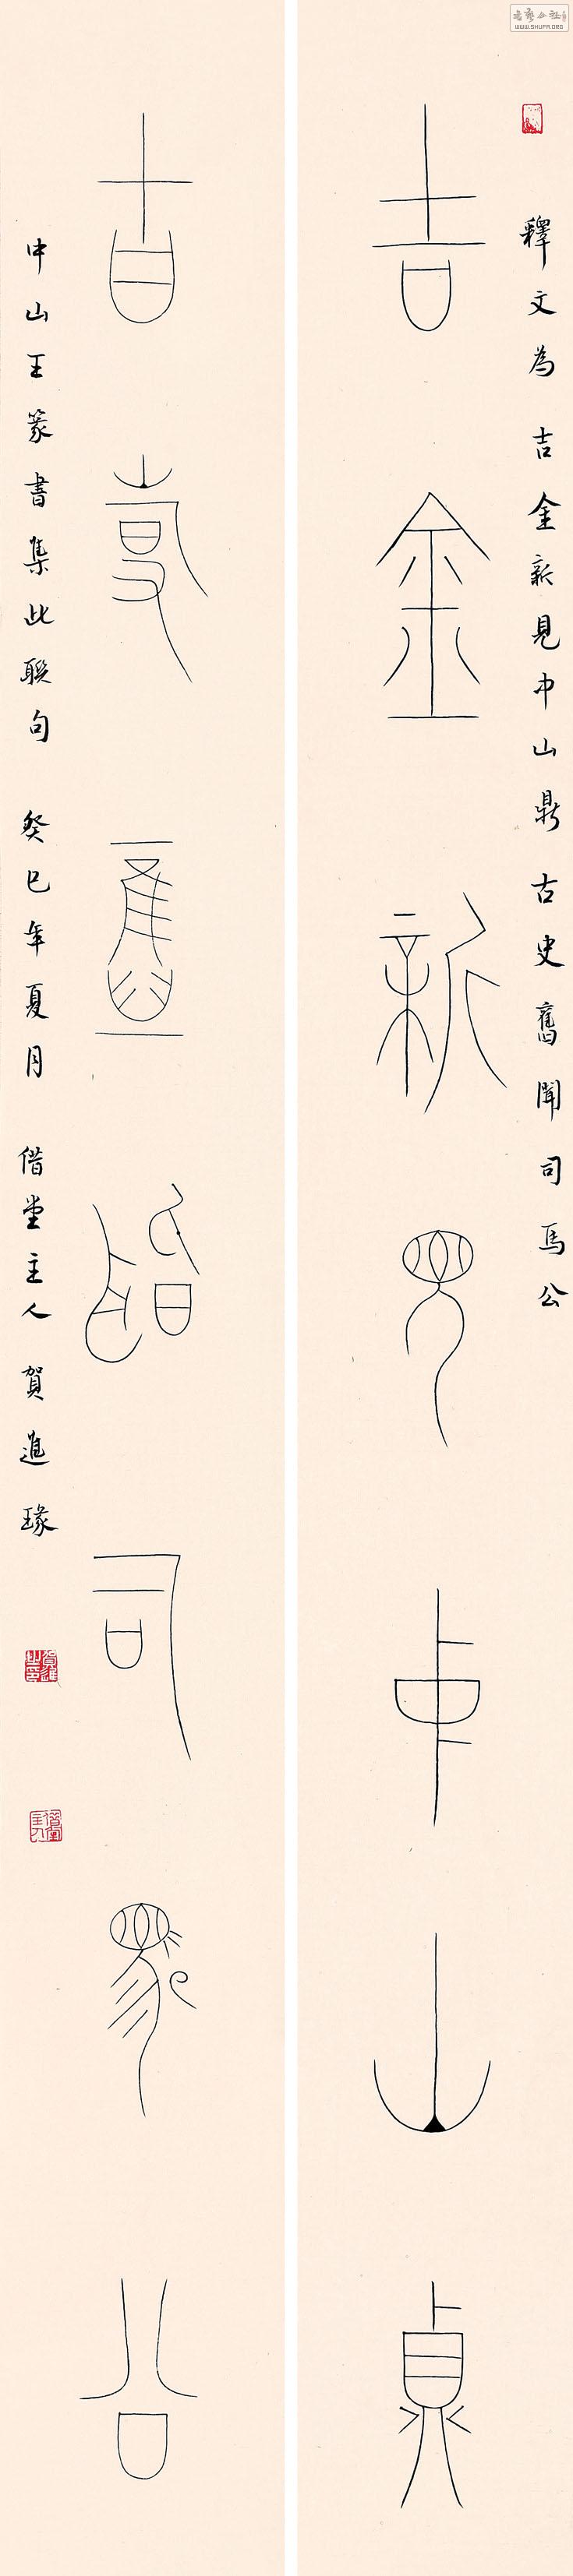 釋文為 吉金新見中山鼎古史舊聞司馬公
吉金新見中山鼎
古史舊聞司馬公
中山王篆書集此聯句 癸巳年夏月 借堂主人 賀進瑑
WWW.SHUFA.ORG